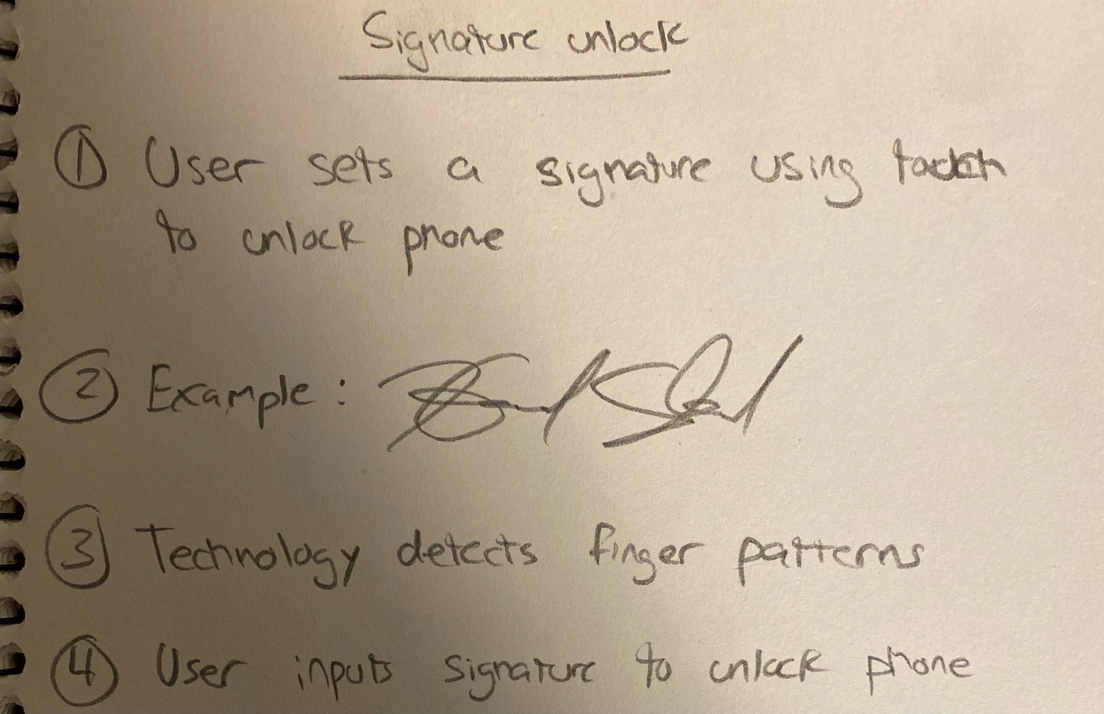 Signature unlock
① User sets a signature using touch
to unlock phone
② Example:
③ Technology detects finger patterns
④ User inputs signature to unlock phone